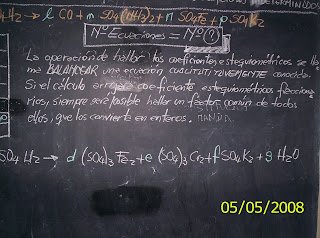 COEFICIENTES INDETERMINADOS
4H2 → l CO + m SO4(NH4)2 + n SO4Fe + p SO4K2
Nº Ecuaciones = Nº (?)
La operación de hallar los coeficientes estequiométricos se lla
ma BALANCEAR una ecuación CUALITATIVAMENTE conocida.
Si el cálculo arroja coeficientes estequiométricos fracciona
rios, siempre será posible hallar un factor común de todos
ellos, que los convierte en enteros.
SO4H2 → d (SO4)3Fe2 + e (SO4)3Cr2 + f SO4K2 + g H2O
05/05/2008